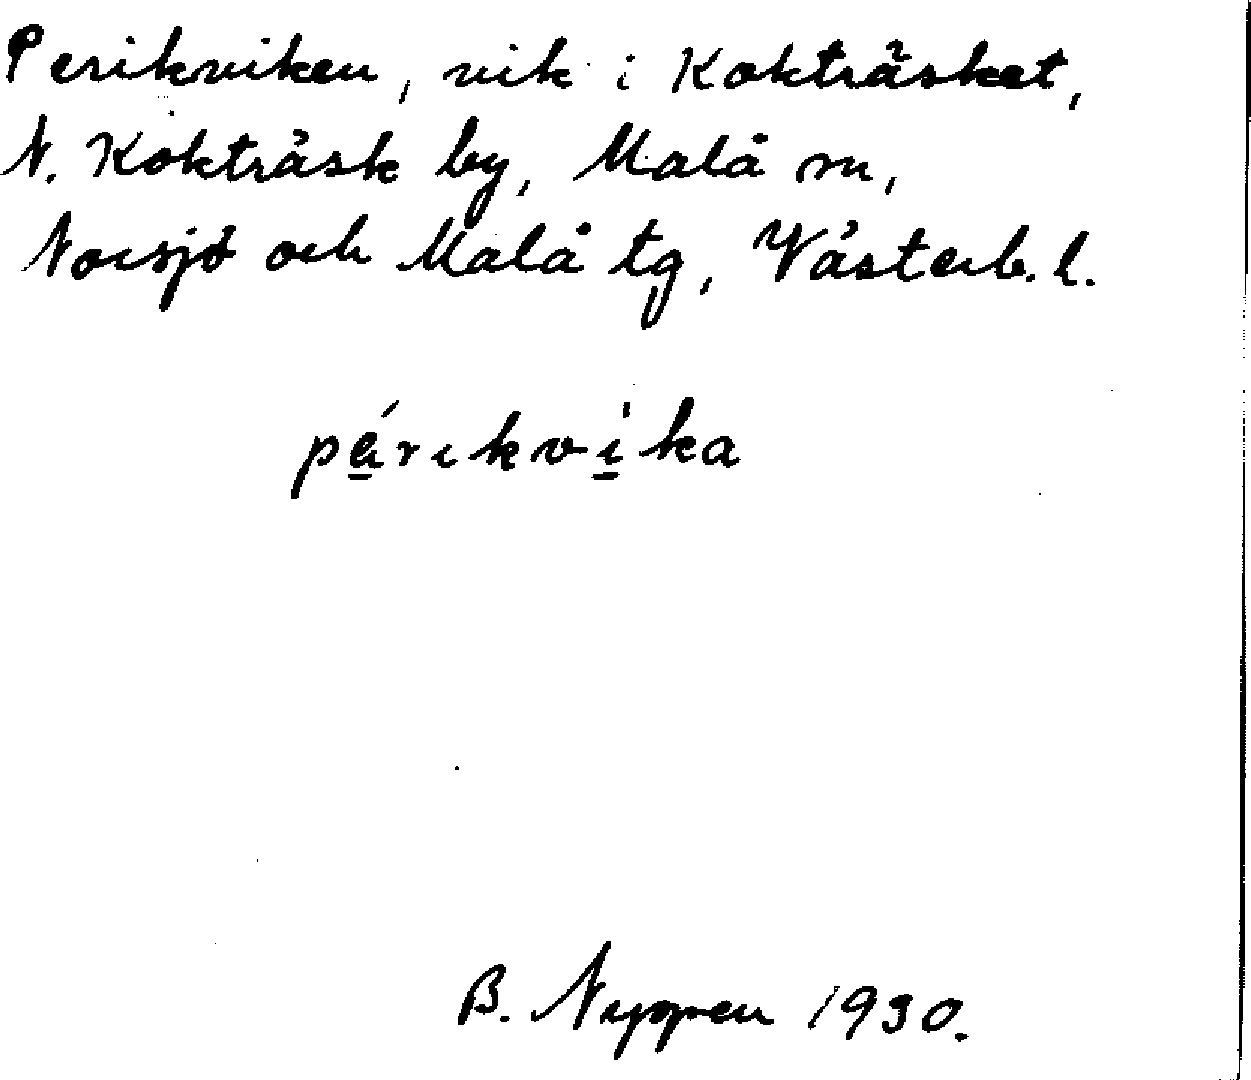 Perikviken, vik i Kokträsket,
N. Kokträsk by, Malå sn,
Norsjö och Malå tg, Västerb. l.
pérıkvìka
B. Nyppen 1930.